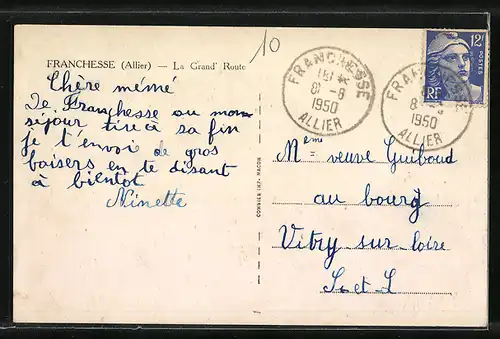 10
FRANCHESSE (Allier) — La Grand' Route
Chère mémé
De Franchesse ou mon
séjour tire à sa fin
je t'envoi de gros
baisers en te disant
à bientôt
Ninette
FRANCHESSE
8 -8
1950
ALLIER
FRANCHESSE
8
1950
ALLIER
12F
POSTES
RF
Mème veuve Guiboud
au bourg
Vitry sur loire
S. et L